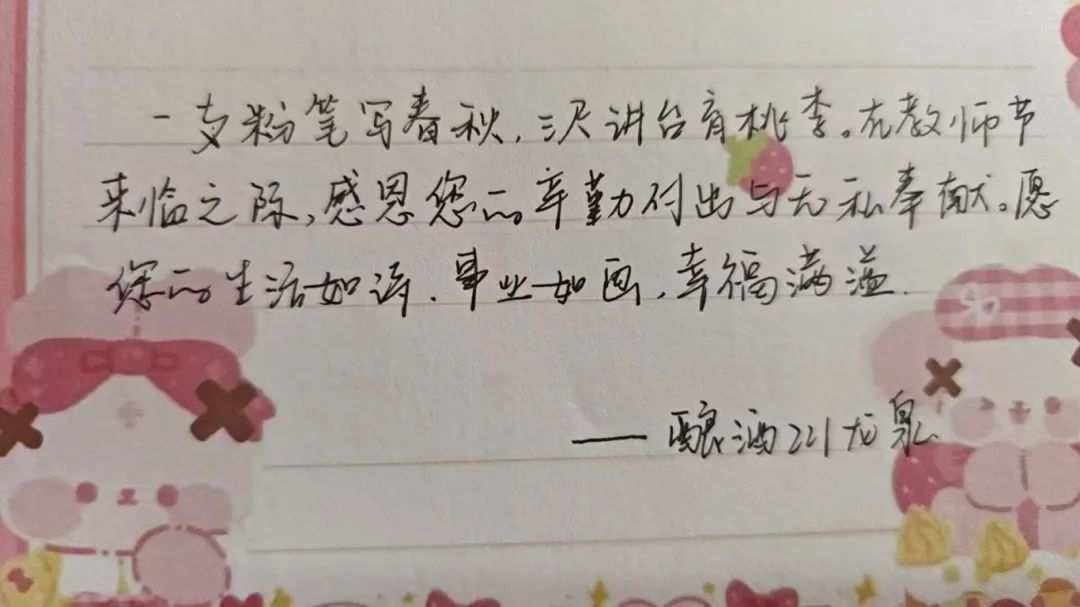 一支粉笔写春秋,三尺讲台育桃李。在教师节
来临之际,感恩您的辛勤付出与无私奉献。愿
您的生活如诗,事业如画,幸福满溢.
—— 酿酒221龙泉